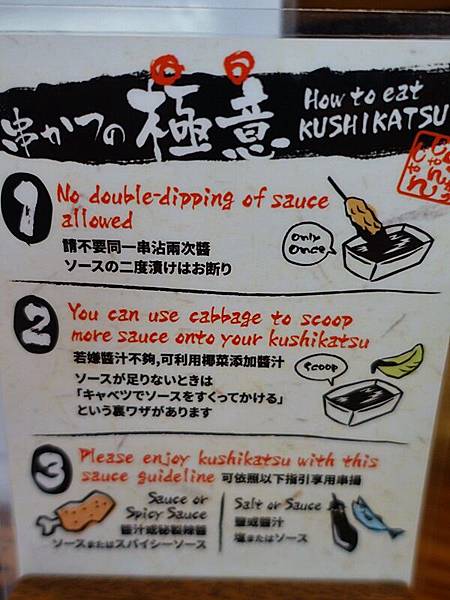 串かつの極意
How to eat
KUSHIKATSU
1
No double-dipping of sauce
allowed
請不要同一串沾兩次醬
ソースの二度漬けはお断り
only
once
2
You can use cabbage to scoop
more sauce onto your kushikatsu
若嫌醬汁不夠,可利用椰菜添加醬汁
ソースが足りないときは
「キャベツでソースをすくってかける」
という裏ワザがあります
scoop
3
Please enjoy kushikatsu with this
sauce guideline 可依照以下指引享用串揚
Sauce or
Spicy Sauce
醬汁或秘製辣醬
ソースまたはスパイシーソース
Salt or Sauce
鹽或醬汁
塩またはソース